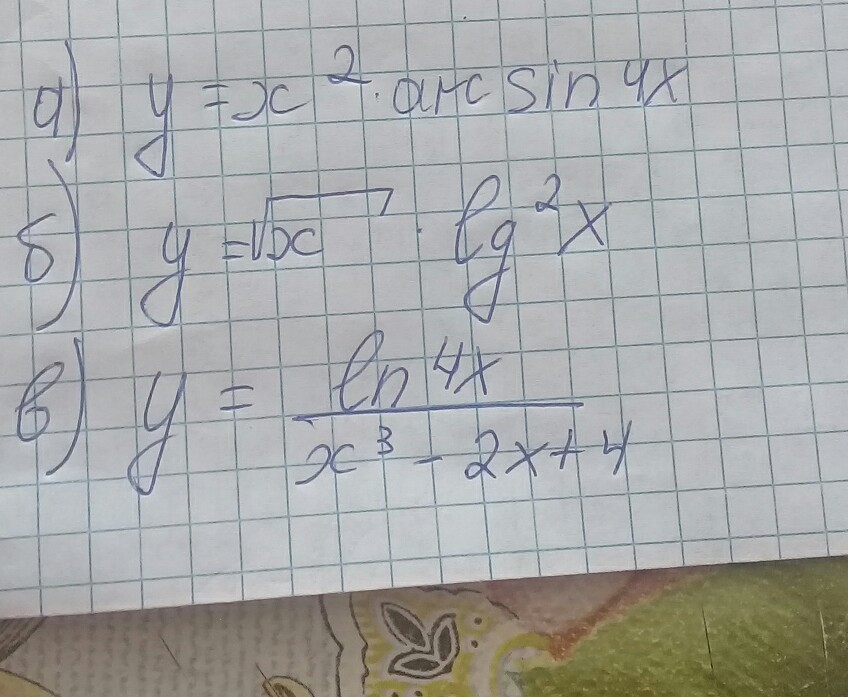 а) y = x² · arc sin 4x
б) y = √x · lg²x
в) y = ln 4x / x³ - 2x + 4